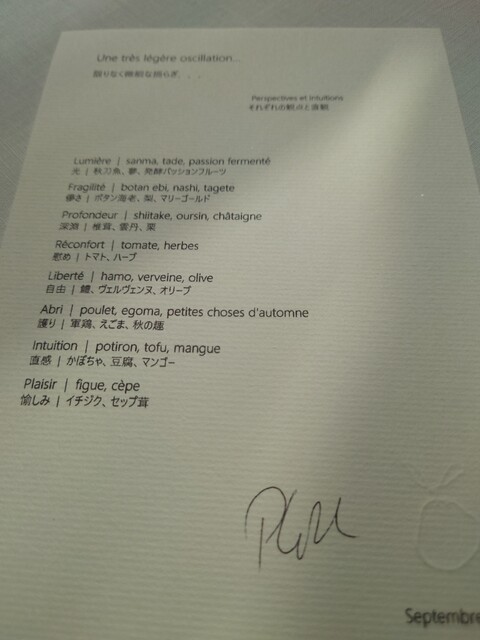 Une très légère oscillation...
限りなく微細な揺らぎ．．．
Perspectives et Intuitions
それぞれの観点と直観
Lumière | sanma, tade, passion fermenté
光 | 秋刀魚、蓼、発酵パッションフルーツ
Fragilité | botan ebi, nashi, tagete
儚さ | ボタン海老、梨、マリーゴールド
Profondeur | shiitake, oursin, châtaigne
深淵 | 椎茸、雲丹、栗
Réconfort | tomate, herbes
慰め | トマト、ハーブ
Liberté | hamo, verveine, olive
自由 | 鱧、ヴェルヴェンヌ、オリーブ
Abri | poulet, egoma, petites choses d'automne
護り | 軍鶏、えごま、秋の趣
Intuition | potiron, tofu, mangue
直感 | かぼちゃ、豆腐、マンゴー
Plaisir | figue, cèpe
愉しみ | イチジク、セップ茸
Septembre